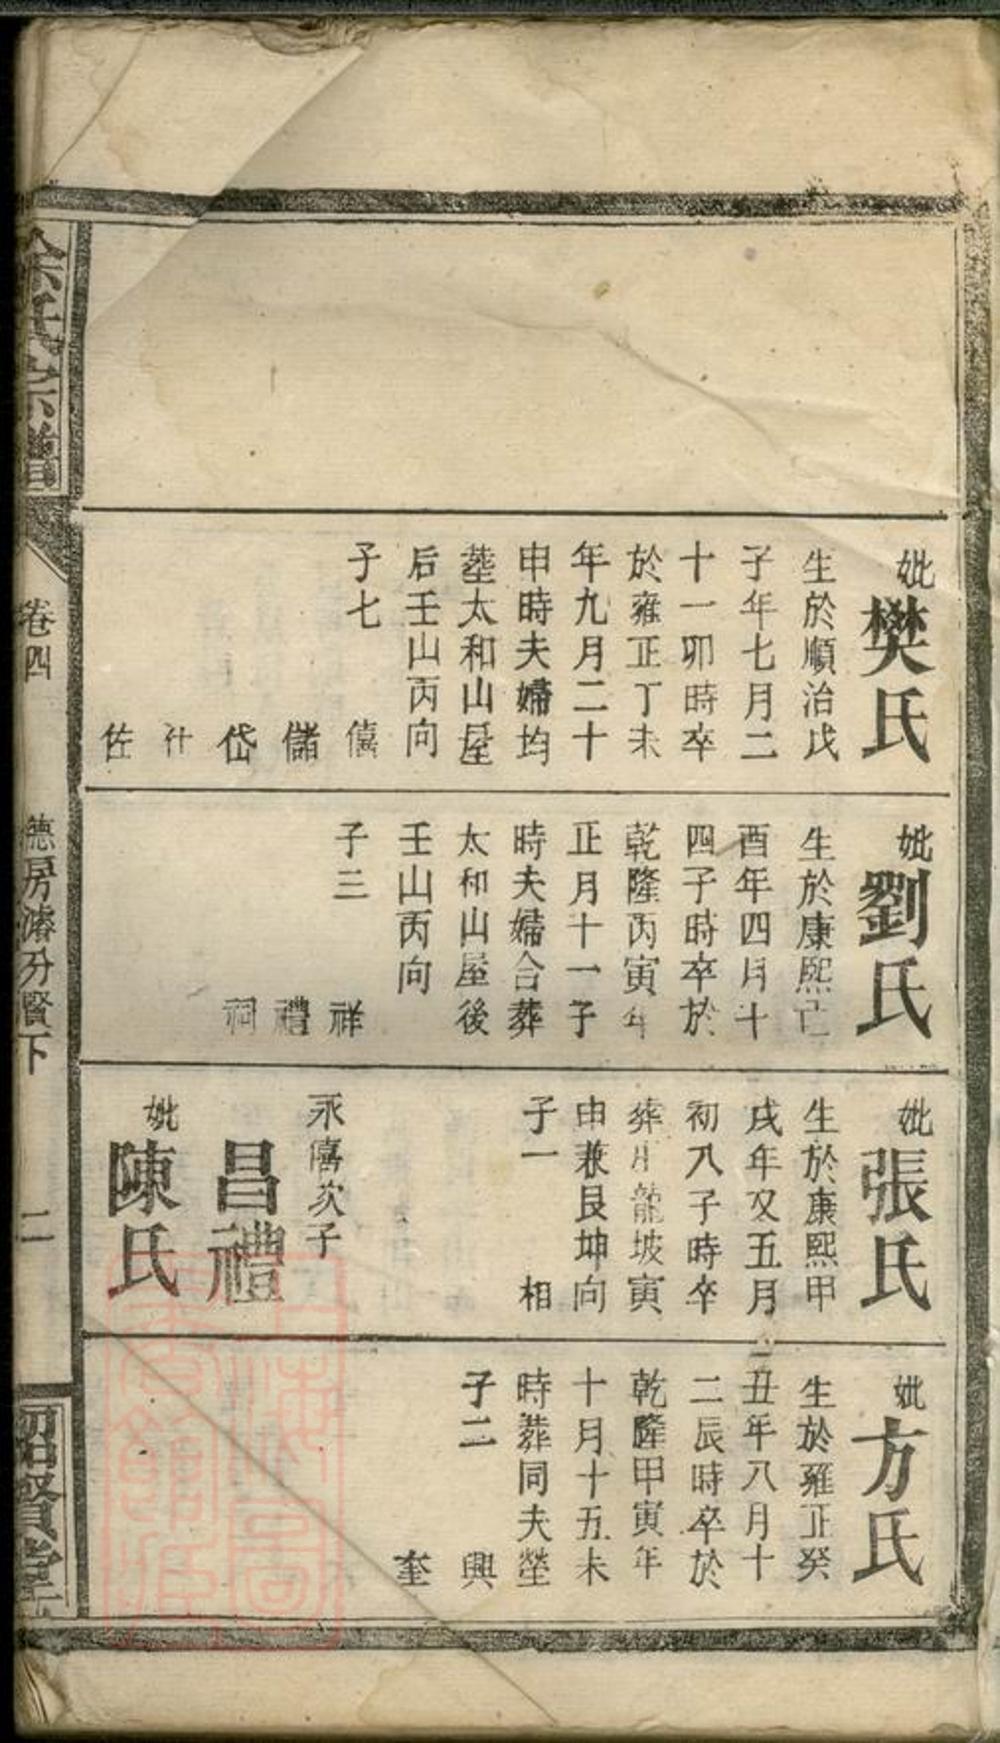 妣樊氏
生於順治戊
子年七月二
十一卯時卒
於雍正丁未
年九月二十
申時夫婦均
塟太和山屋
后壬山丙向
子七
僖
儲
岱
什
佐
妣劉氏
生於康熙
酉年四月十
四子時卒於
乾隆丙寅年
正月十一子
時夫婦合葬
太和山屋後
壬山丙向
子三
祥
禮
祠
妣張氏
生於康熙甲
戌年又五月
初八子時卒
葬爿龍坡寅
申兼艮坤向
子一
相
永僖次子
昌禮
妣陳氏
妣方氏
生於雍正癸
丑年八月十
二辰時卒於
乾隆甲寅年
十月十五未
時葬同夫塋
子二
興
奎
氏宗譜
卷四
德房濬分賢下
二
紹賢堂